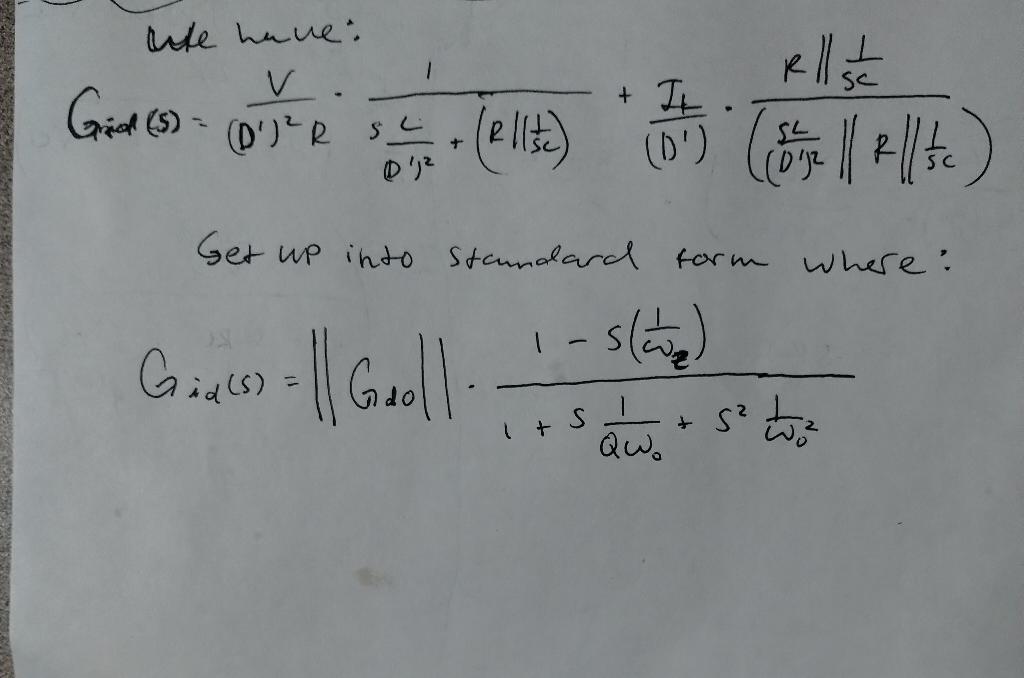 We have:
Gid(s) = V/((D')² R) · 1/(s L/(D')² + (R || 1/sC)) + IL/(D') · (R || 1/sC)/(sL/(D')² || R || 1/sC)
Get up into standard form where:
Gid(s) = ||Gdo|| · (1 - s(1/ωz))/(1 + s 1/(Qω₀) + s² 1/ω₀²)